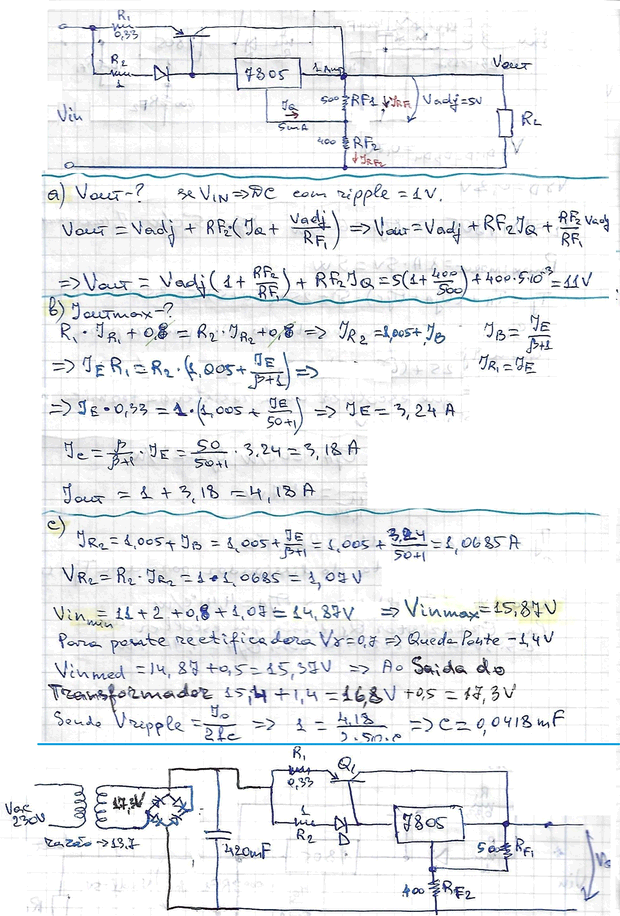 R1
0,33
R2
1
7805
1 Amp
Vout
500 RF1 IRF1 Vadj=5V
IQ
5mA
Vin
400 RF2
IRF2
RL
a) Vout-? se VIN⇒DC com ripple = 1V.
Vout = Vadj + RF2·(IQ + Vadj/RF1) ⇒ Vout = Vadj + RF2 IQ + RF2/RF1 Vadj
⇒ Vout = Vadj(1 + RF2/RF1) + RF2 IQ = 5(1 + 400/500) + 400·5·10⁻³ = 11V
b) Ioutmax-?
R1·IR1 + 0,8 = R2·IR2 + 0,8 ⇒ IR2 = 1,005 + IB IB = IE/β+1
⇒ IE R1 = R2·(1,005 + IE/β+1) ⇒ IR1 = IE
⇒ IE·0,33 = 1·(1,005 + IE/50+1) ⇒ IE = 3,24 A
Ic = β/β+1 · IE = 50/50+1 · 3,24 = 3,18 A
Iout = 1 + 3,18 = 4,18 A
c)
IR2 = 1,005 + IB = 1,005 + IE/β+1 = 1,005 + 3,24/50+1 = 1,0685 A
VR2 = R2·IR2 = 1·1,0685 = 1,07V
Vin min = 11 + 2 + 0,8 + 1,07 = 14,87V ⇒ Vinmax = 15,87V
Para ponte rectificadora Vγ = 0,7 ⇒ Queda Ponte - 1,4V
Vinmed = 14,87 + 0,5 = 15,37V ⇒ Ao Saida do
Transformador 15,4 + 1,4 = 16,8V + 0,5 = 17,3V
Sendo Vripple = Io/2fc ⇒ 1 = 4,18/2·50·c ⇒ c = 0,0418 mF
R1
0,33
Q1
1
R2
D
7805
Vac
230V
17,3V
razão → 13,7
420mF
500 RF1
400 RF2
Vo